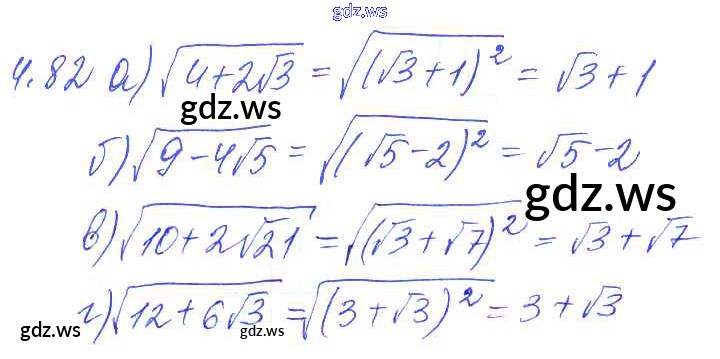 gdz.ws
4.82 а) √(4+2√3) = √((√3+1)²) = √3+1
gdz.ws
б) √(9-4√5) = √((√5-2)²) = √5-2
gdz.ws
в) √(10+2√21) = √((√3+√7)²) = √3+√7
г) √(12+6√3) = √((3+√3)²) = 3+√3
gdz.ws
gdz.ws